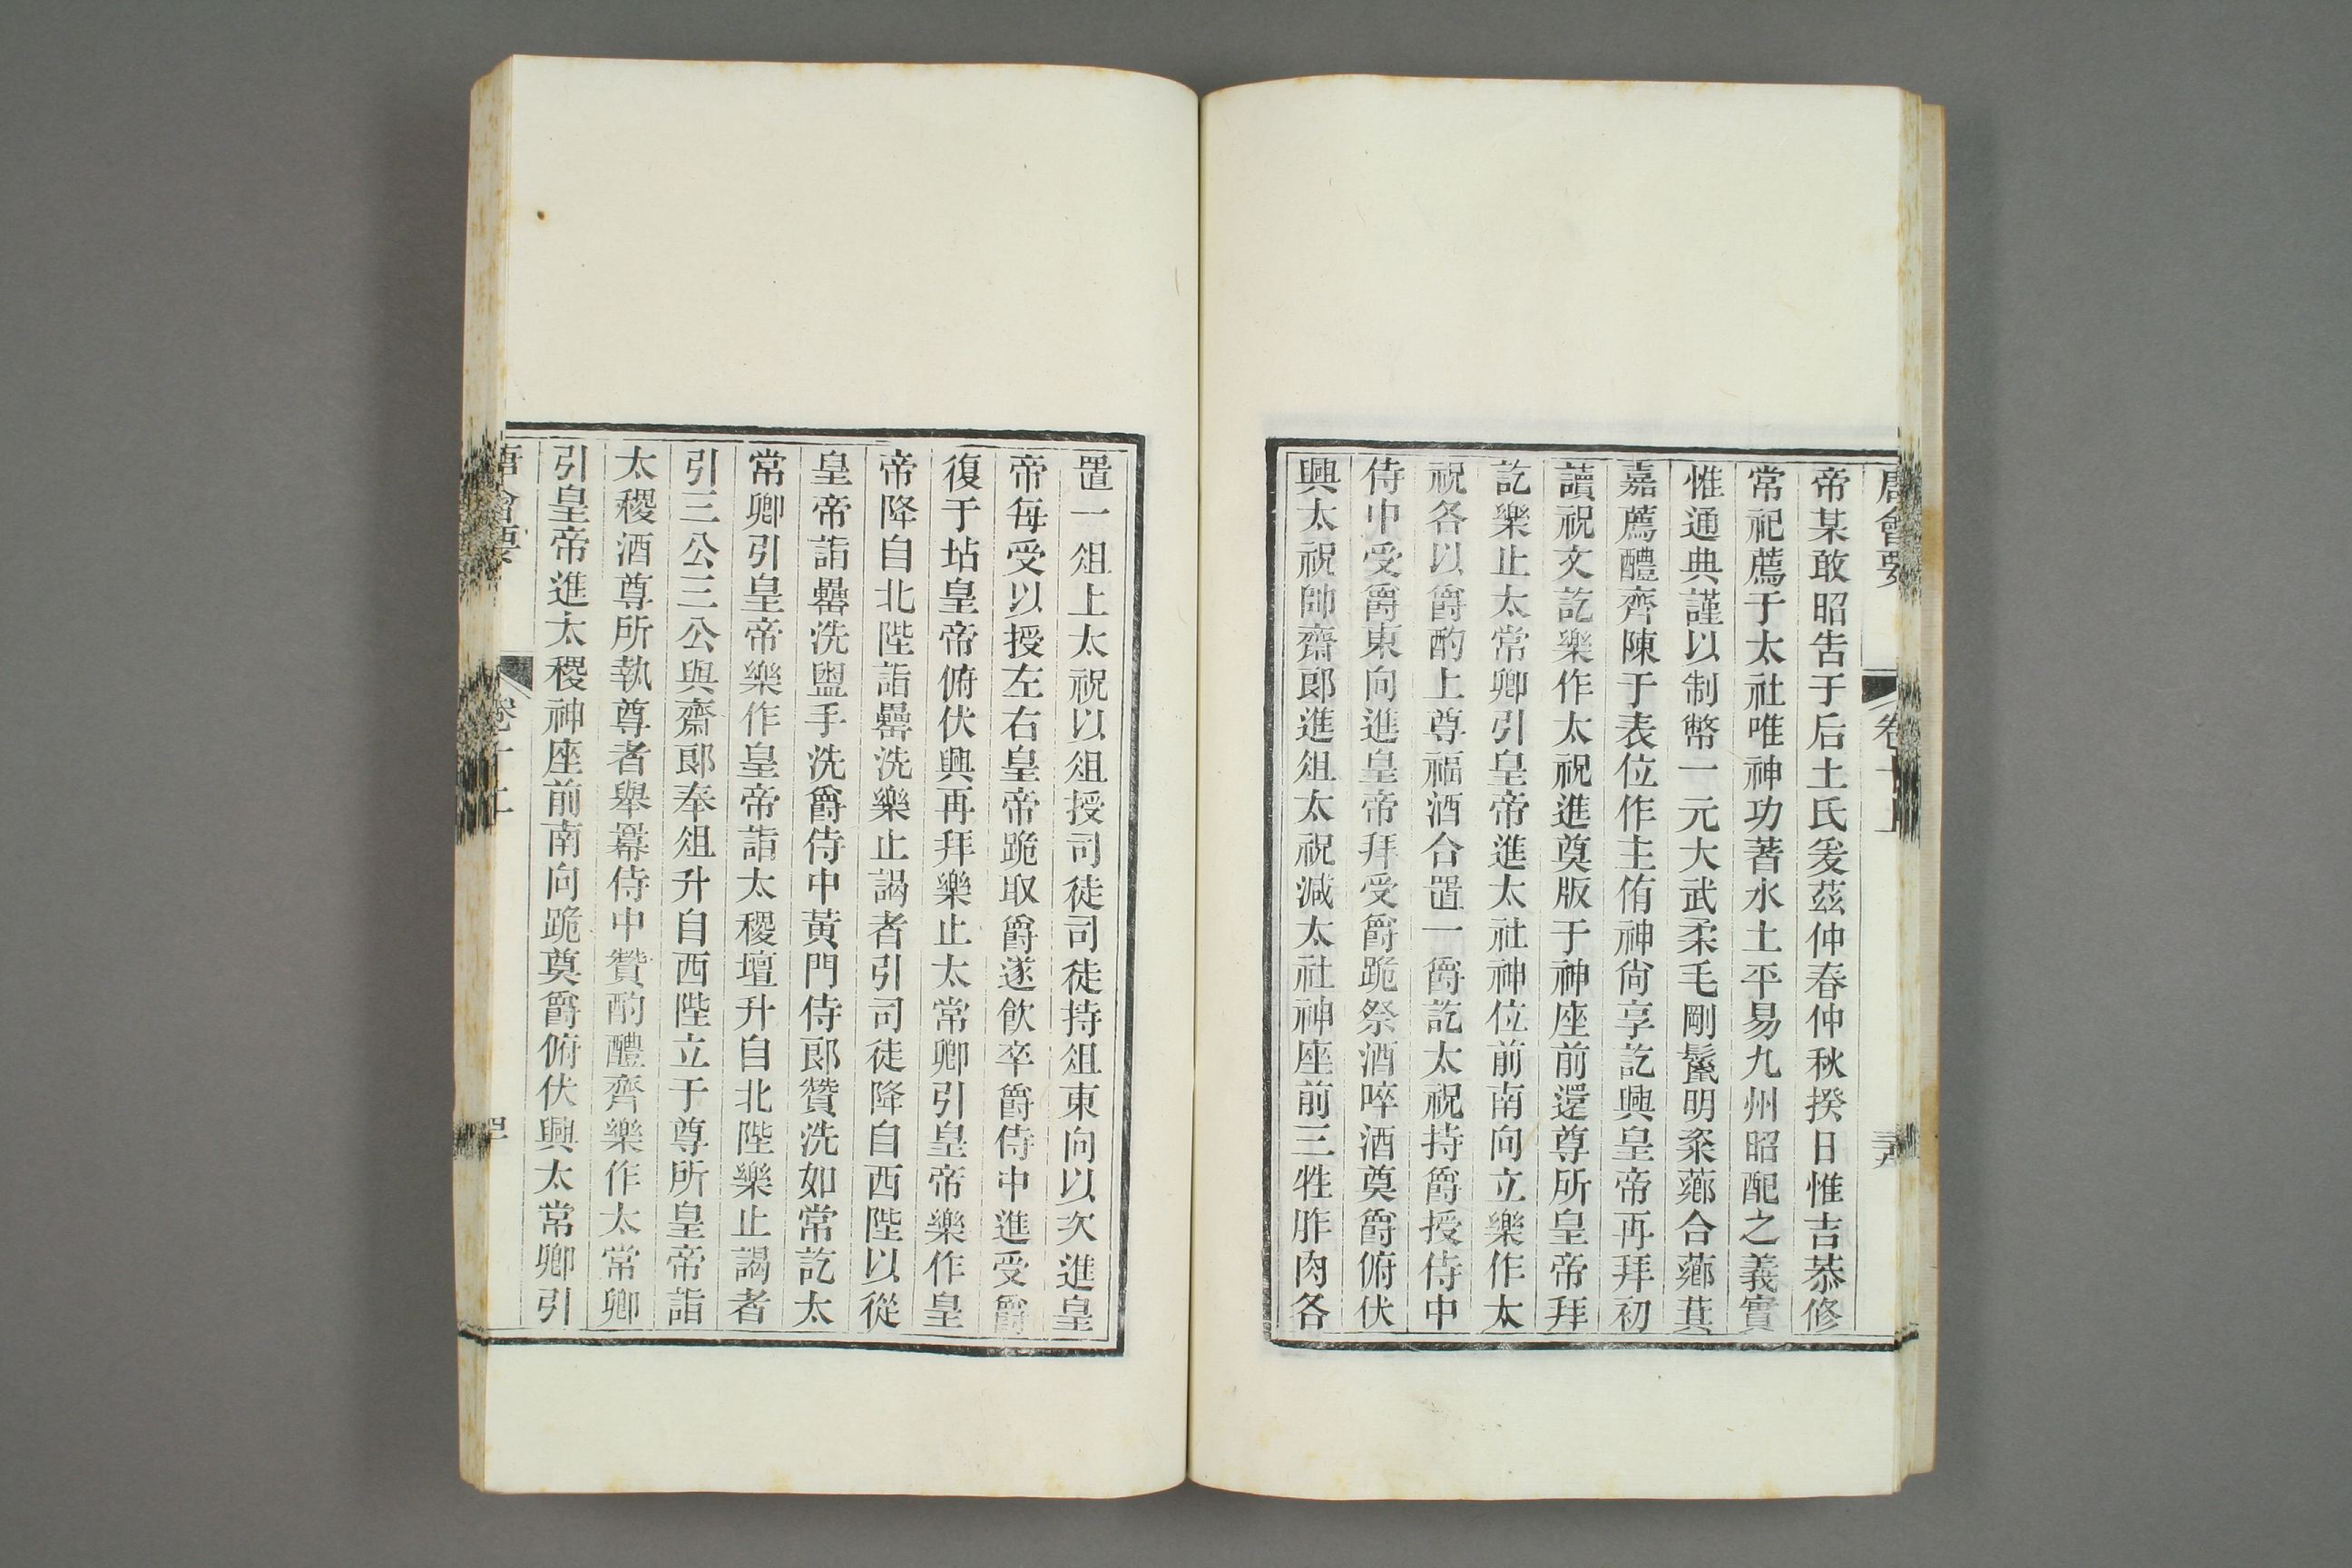 唐會要 卷十上
帝某敢昭告于后土氏爰茲仲春仲秋揆日惟吉恭修
常祀薦于太社唯神功著水土平易九州昭配之義實
惟通典謹以制幣一元大武柔毛剛鬣明粢薌合薌萁
嘉薦醴齊陳于表位作主侑神尙享訖興皇帝再拜初
讀祝文訖樂作太祝進奠版于神座前還尊所皇帝拜
訖樂止太常卿引皇帝進太社神位前南向立樂作太
祝各以爵酌上尊福酒合罝一爵訖太祝持爵授侍中
侍中受爵東向進皇帝拜受爵跪祭酒啐酒奠爵俯伏
興太祝帥齋郞進俎太祝減太社神座前三牲胙肉各
罝一俎上太祝以俎授司徒司徒持俎東向以次進皇
帝每受以授左右皇帝跪取爵遂飮卒爵侍中進受爵
復于坫皇帝俯伏興再拜樂止太常卿引皇帝樂作皇
帝降自北陛詣罍洗樂止謁者引司徒降自西陛以從
皇帝詣罍洗盥手洗爵侍中黃門侍郞贊洗如常訖太
常卿引皇帝樂作皇帝詣太稷壇升自北陛樂止謁者
引三公三公與齋郞奉俎升自西陛立于尊所皇帝詣
太稷酒尊所執尊者舉羃侍中贊酌醴齊樂作太常卿
引皇帝進太稷神座前南向跪奠爵俯伏興太常卿引
唐會要 卷十上